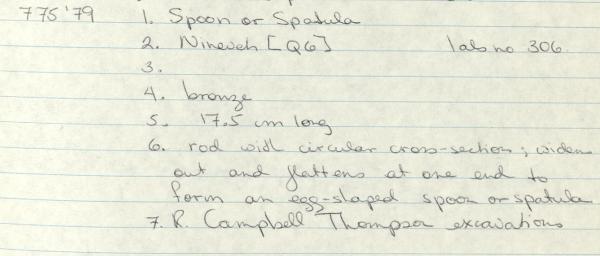 775'79 1. Spoon or Spatula
2. Nineveh [Q6] lab no 306.
3.
4. bronze
5. 17.5 cm long
6. rod with circular cross-section; widens
out and flattens at one end to
form an egg-shaped spoon or spatula
7. R. Campbell Thompson excavations